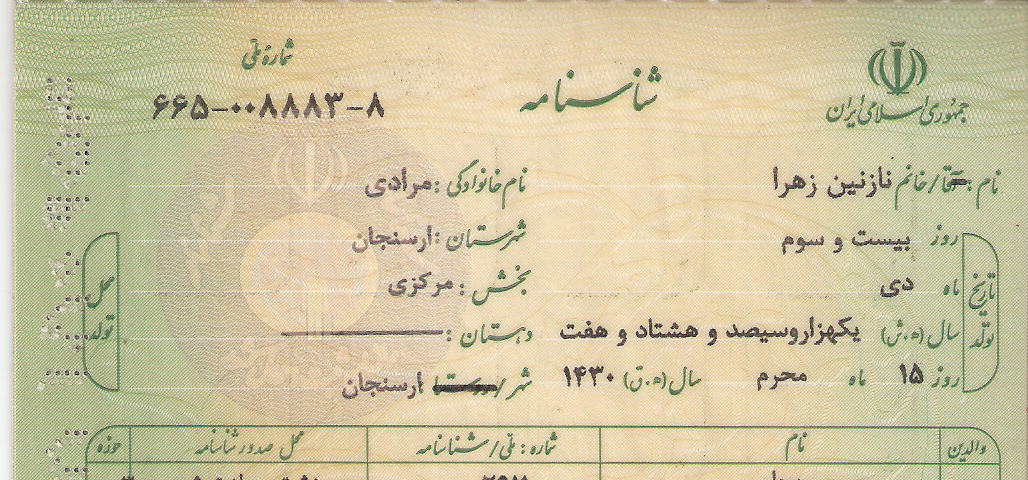 جمهوری اسلامی ایران
شناسنامه
شمارهٔ ملی
۶۶۵-۰۰۸۸۸۳-۸
نام : آقا/خانم نازنین زهرا
نام خانوادگی : مرادی
تاریخ تولد
روز بیست و سوم
ماه دی
سال (ه.ش) یکهزاروسیصد و هشتاد و هفت
روز ۱۵ ماه محرم سال (ه.ق) ۱۴۳۰
محل تولد
شهرستان : ارسنجان
بخش : مرکزی
دهستان :
شهر/روستا ارسنجان
والدین نام شماره : ملی/شناسنامه محل صدور شناسنامه حوزه